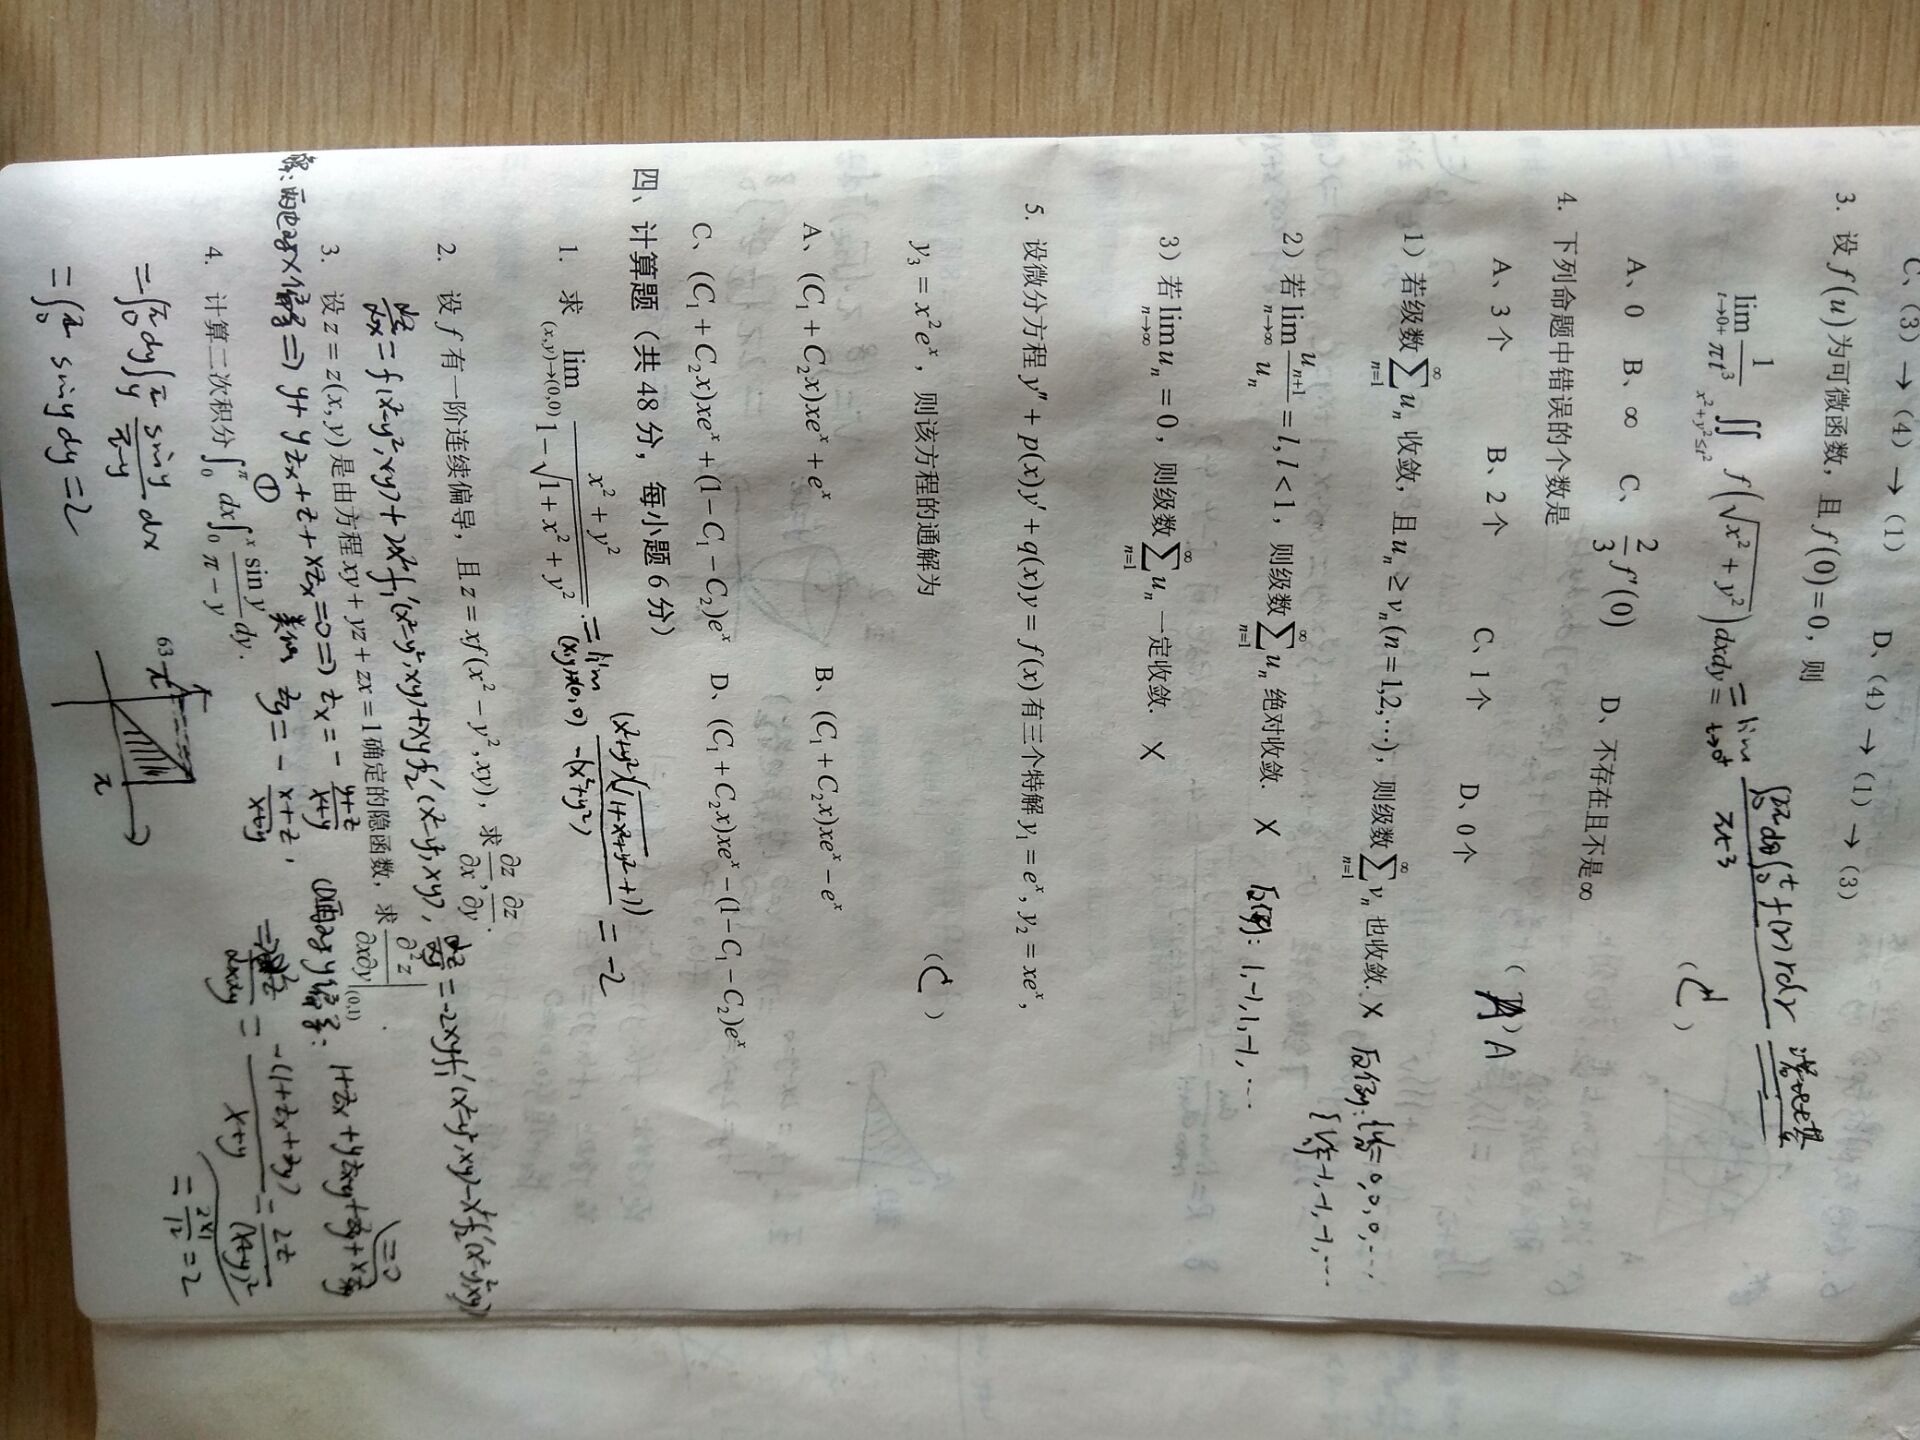 C、(3) → (4) → (1)    D、(4) → (1) → (3)
3. 设 f(u) 为可微函数，且 f(0)=0，则
lim_{t→0+} 1/(πt³) ∬_{x²+y²≤t²} f(√(x²+y²))dxdy = = lim_{t→0+} ∫₀^{2π}dθ∫₀^t f(r)rdr / πt³
(C)
A、0 B、∞ C、2/3 f′(0) D、不存在且不是∞
4. 下列命题中错误的个数是 (A) A
A、3 个 B、2 个 C、1 个 D、0 个
1) 若级数 ∑_{n=1}^∞ uₙ 收敛，且 uₙ ≥ vₙ (n=1,2,⋯)，则级数 ∑_{n=1}^∞ vₙ 也收敛. × 反例: {uₙ}=0,0,0,…;
{vₙ}=-1,-1,-1,…
2) 若 lim_{n→∞} uₙ₊₁/uₙ = l, l<1，则级数 ∑_{n=1}^∞ uₙ 绝对收敛. × 反例: 1,-1,1,-1,…
3) 若 lim_{n→∞} uₙ = 0，则级数 ∑_{n=1}^∞ uₙ 一定收敛. ×
5. 设微分方程 y″ + p(x)y′ + q(x)y = f(x) 有三个特解 y₁ = eˣ, y₂ = xeˣ,
y₃ = x²eˣ，则该方程的通解为 (C)
A、(C₁ + C₂x)xeˣ + eˣ B、(C₁ + C₂x)xeˣ − eˣ
C、(C₁ + C₂x)xeˣ + (1 − C₁ − C₂)eˣ D、(C₁ + C₂x)xeˣ − (1 − C₁ − C₂)eˣ
四、计算题（共 48 分，每小题 6 分）
1. 求 lim_{(x,y)→(0,0)} (x² + y²)/(1 − √(1 + x² + y²)). = lim_{(x,y)→(0,0)} (x²+y²)(√(1+x²+y²)+1)/−(x²+y²) = −2
2. 设 f 有一阶连续偏导，且 z = xf(x² − y², xy)，求 ∂z/∂x, ∂z/∂y.
∂z/∂x = f(x²−y²,xy)+2x²f₁′(x²−y²,xy)+xyf₂′(x²−y²,xy), ∂z/∂y = −2xyf₁′(x²−y²,xy)−x²f₂′(x²−y²,xy)
3. 设 z = z(x, y) 是由方程 xy + yz + zx = 1 确定的隐函数，求 ∂²z/∂x∂y|(0,1).
解: 两边对x求偏导 ⇒ y+yzx+z+xzx=0 ⇒ zx = −(y+z)/(x+y)
①
类似 zy = −(x+z)/(x+y), ①两边对y偏导: 1+zx+yzxy+zy+xzxy=0
⇒ ∂²z/∂x∂y = −(1+zx+zy)/(x+y) = 2z/(x+y)²
= 2×1/1² = 2
4. 计算二次积分 ∫₀^π dx∫₀^x sin y/(π − y) dy.
= ∫₀^π dy∫_y^π sin y/(π−y) dx
= ∫₀^π sin y dy = 2
π
π
63